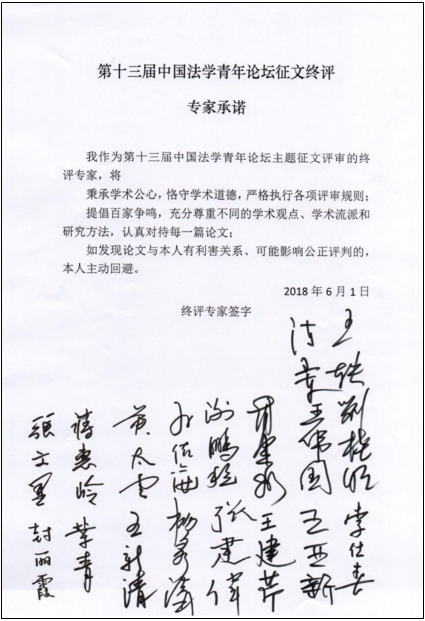 第十三届中国法学青年论坛征文终评
专家承诺
我作为第十三届中国法学青年论坛主题征文评审的终
评专家，将
秉承学术公心，恪守学术道德，严格执行各项评审规则；
提倡百家争鸣，充分尊重不同的学术观点、学术流派和
研究方法，认真对待每一篇论文；
如发现论文与本人有利害关系、可能影响公正评判的，
本人主动回避。
2018 年 6 月 1 日
终评专家签字
王轶
刘桂明
李仕春
王伟国
王亚新
王建芹
谢鹏程
张建伟
黄太云
王新清
蒋惠岭
张文显
封丽霞